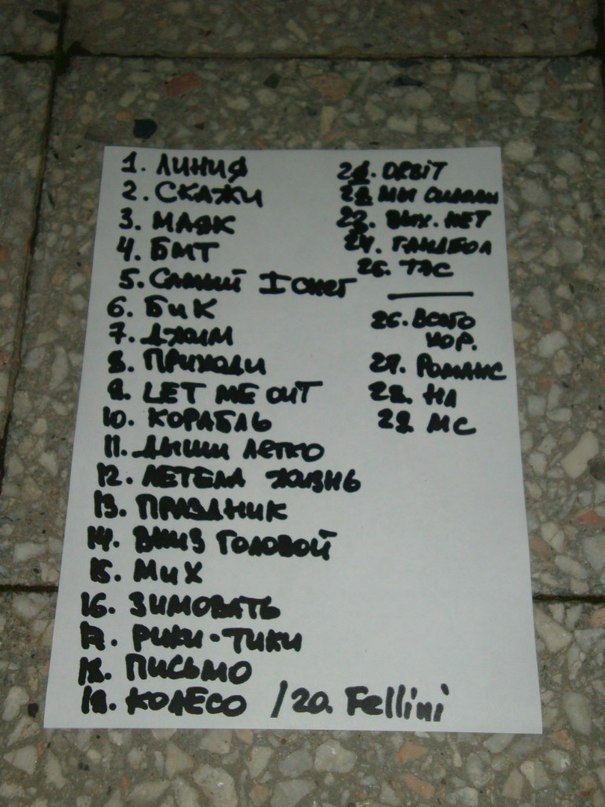 1. ЛИНИЯ
2. СКАЖИ
3. МАЯК
4. БМТ
5. САМЫЙ I СНЕГ
6. БИК
7. ДЖИМ
8. ПРИХОДИ
9. LET ME OUT
10. КОРАБЛЬ
11. ДЫШИ ЛЕГКО
12. ЛЕТЕЛА ЖИЗНЬ
13. ПРАЗДНИК
14. ВНИЗ ГОЛОВОЙ
15. МИХ
16. ЗИМОВАТЬ
17. РИКИ-ТИКИ
18. ПИСЬМО
19. КОЛЕСО / 20. Fellini
21. ORBIT
22. МЫ СИДЕЛИ
23. ВЫХ. НЕТ
24. ГАНДБОЛ
25. ТАС
26. ВСЕГО
ХОР.
27. РОМАНС
28. НЛ
29. МС